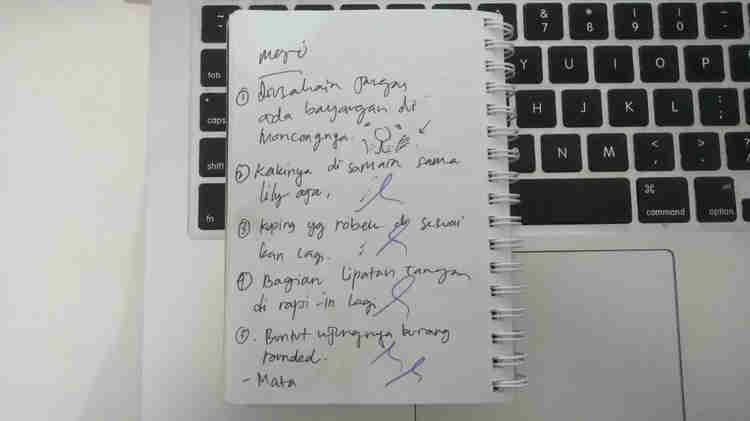 ① Diusahain jangan
ada bayangan di
moncongnya.
② Kakinya di samain sama
lily aja.
③ Kuping yg robek di sesuai
kan lagi.
④ Bagian lipatan tangan
di rapi-in lagi
⑤. Buntut ujungnya kurang
rounded.
- Mata
~
tab
caps
shift
fn
& 7
* 8
( 9
) 0
Y U I O P
H J K L : ;
N M < , > .
⌘
command
option